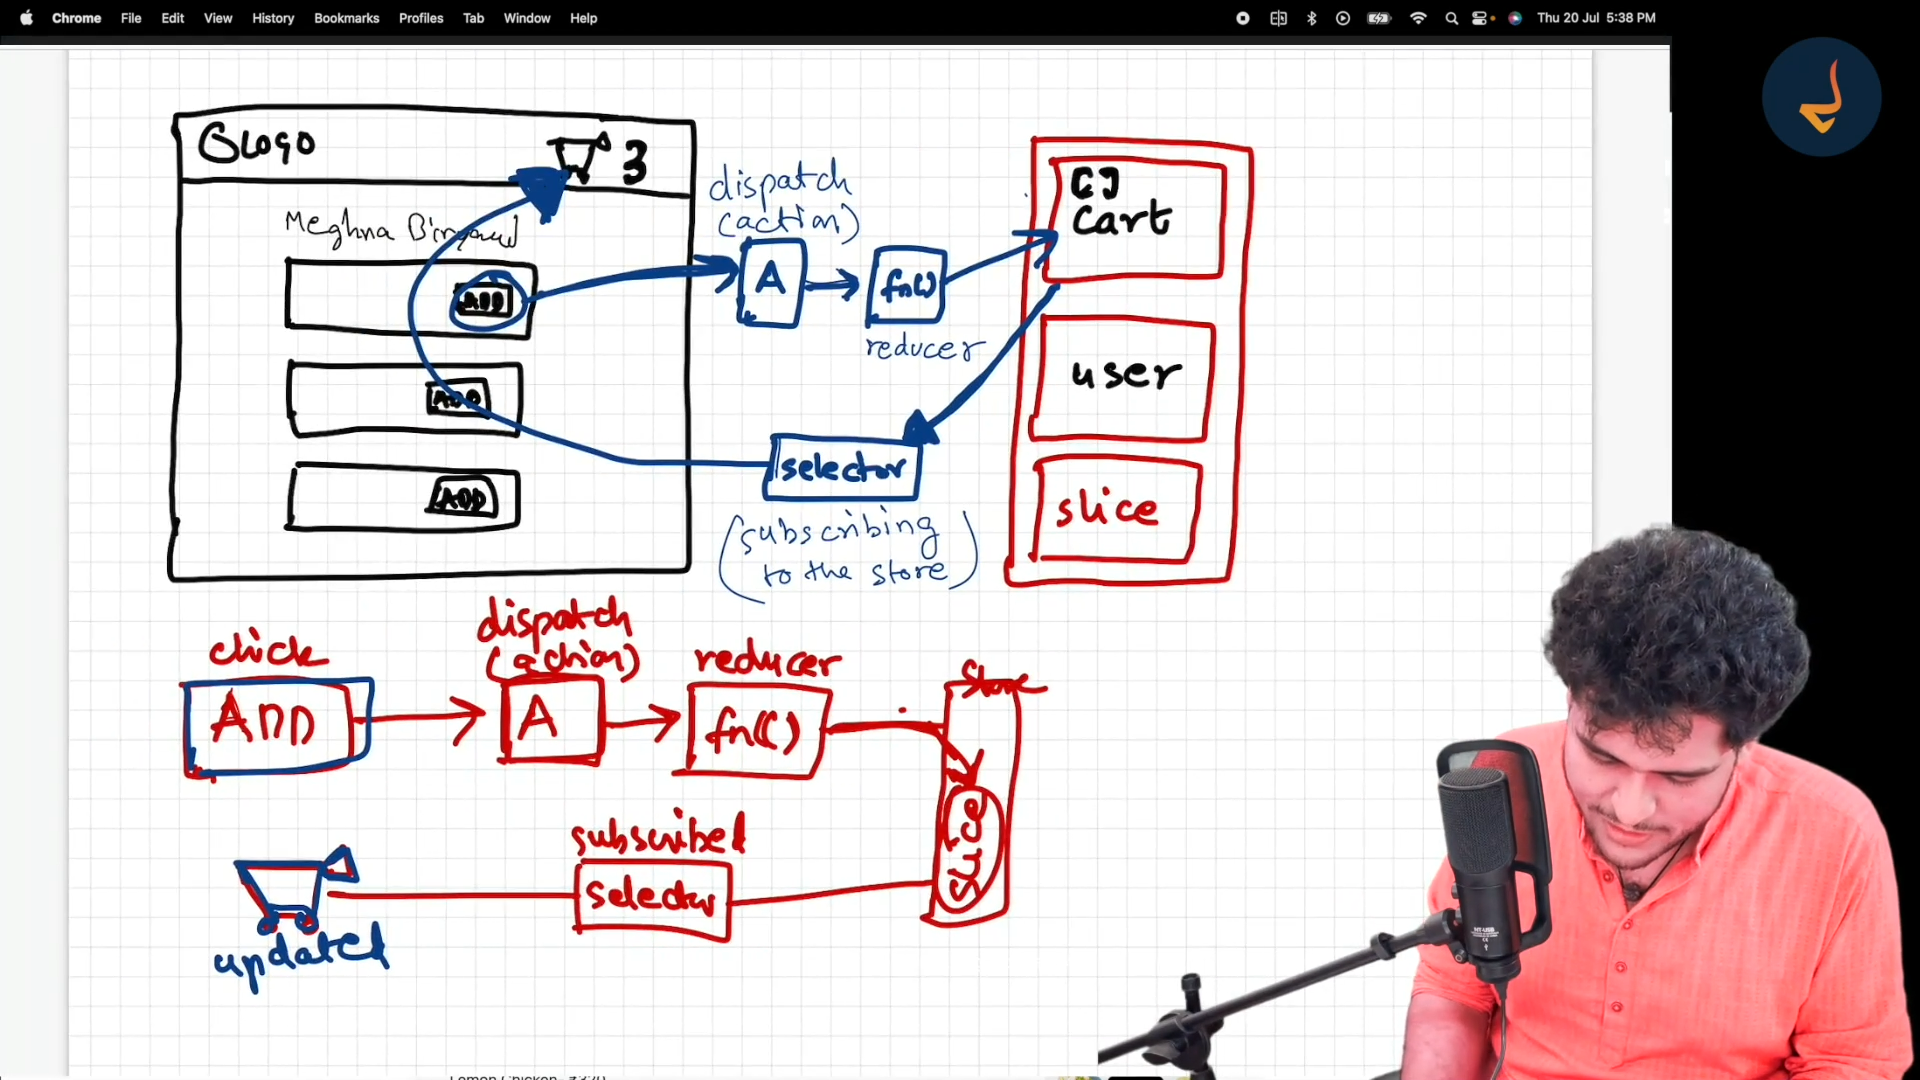 Chrome File Edit View History Bookmarks Profiles Tab Window Help
Thu 20 Jul 5:38 PM
LOGO
3
Meghna
ADD
ADD
ADD
dispatch
(action)
A
fn()
reducer
selector
(subscribing
to the store)
[]
cart
user
slice
click
ADD
dispatch
(action)
A
reducer
fn()
Store
slice
subscribed
selector
updated